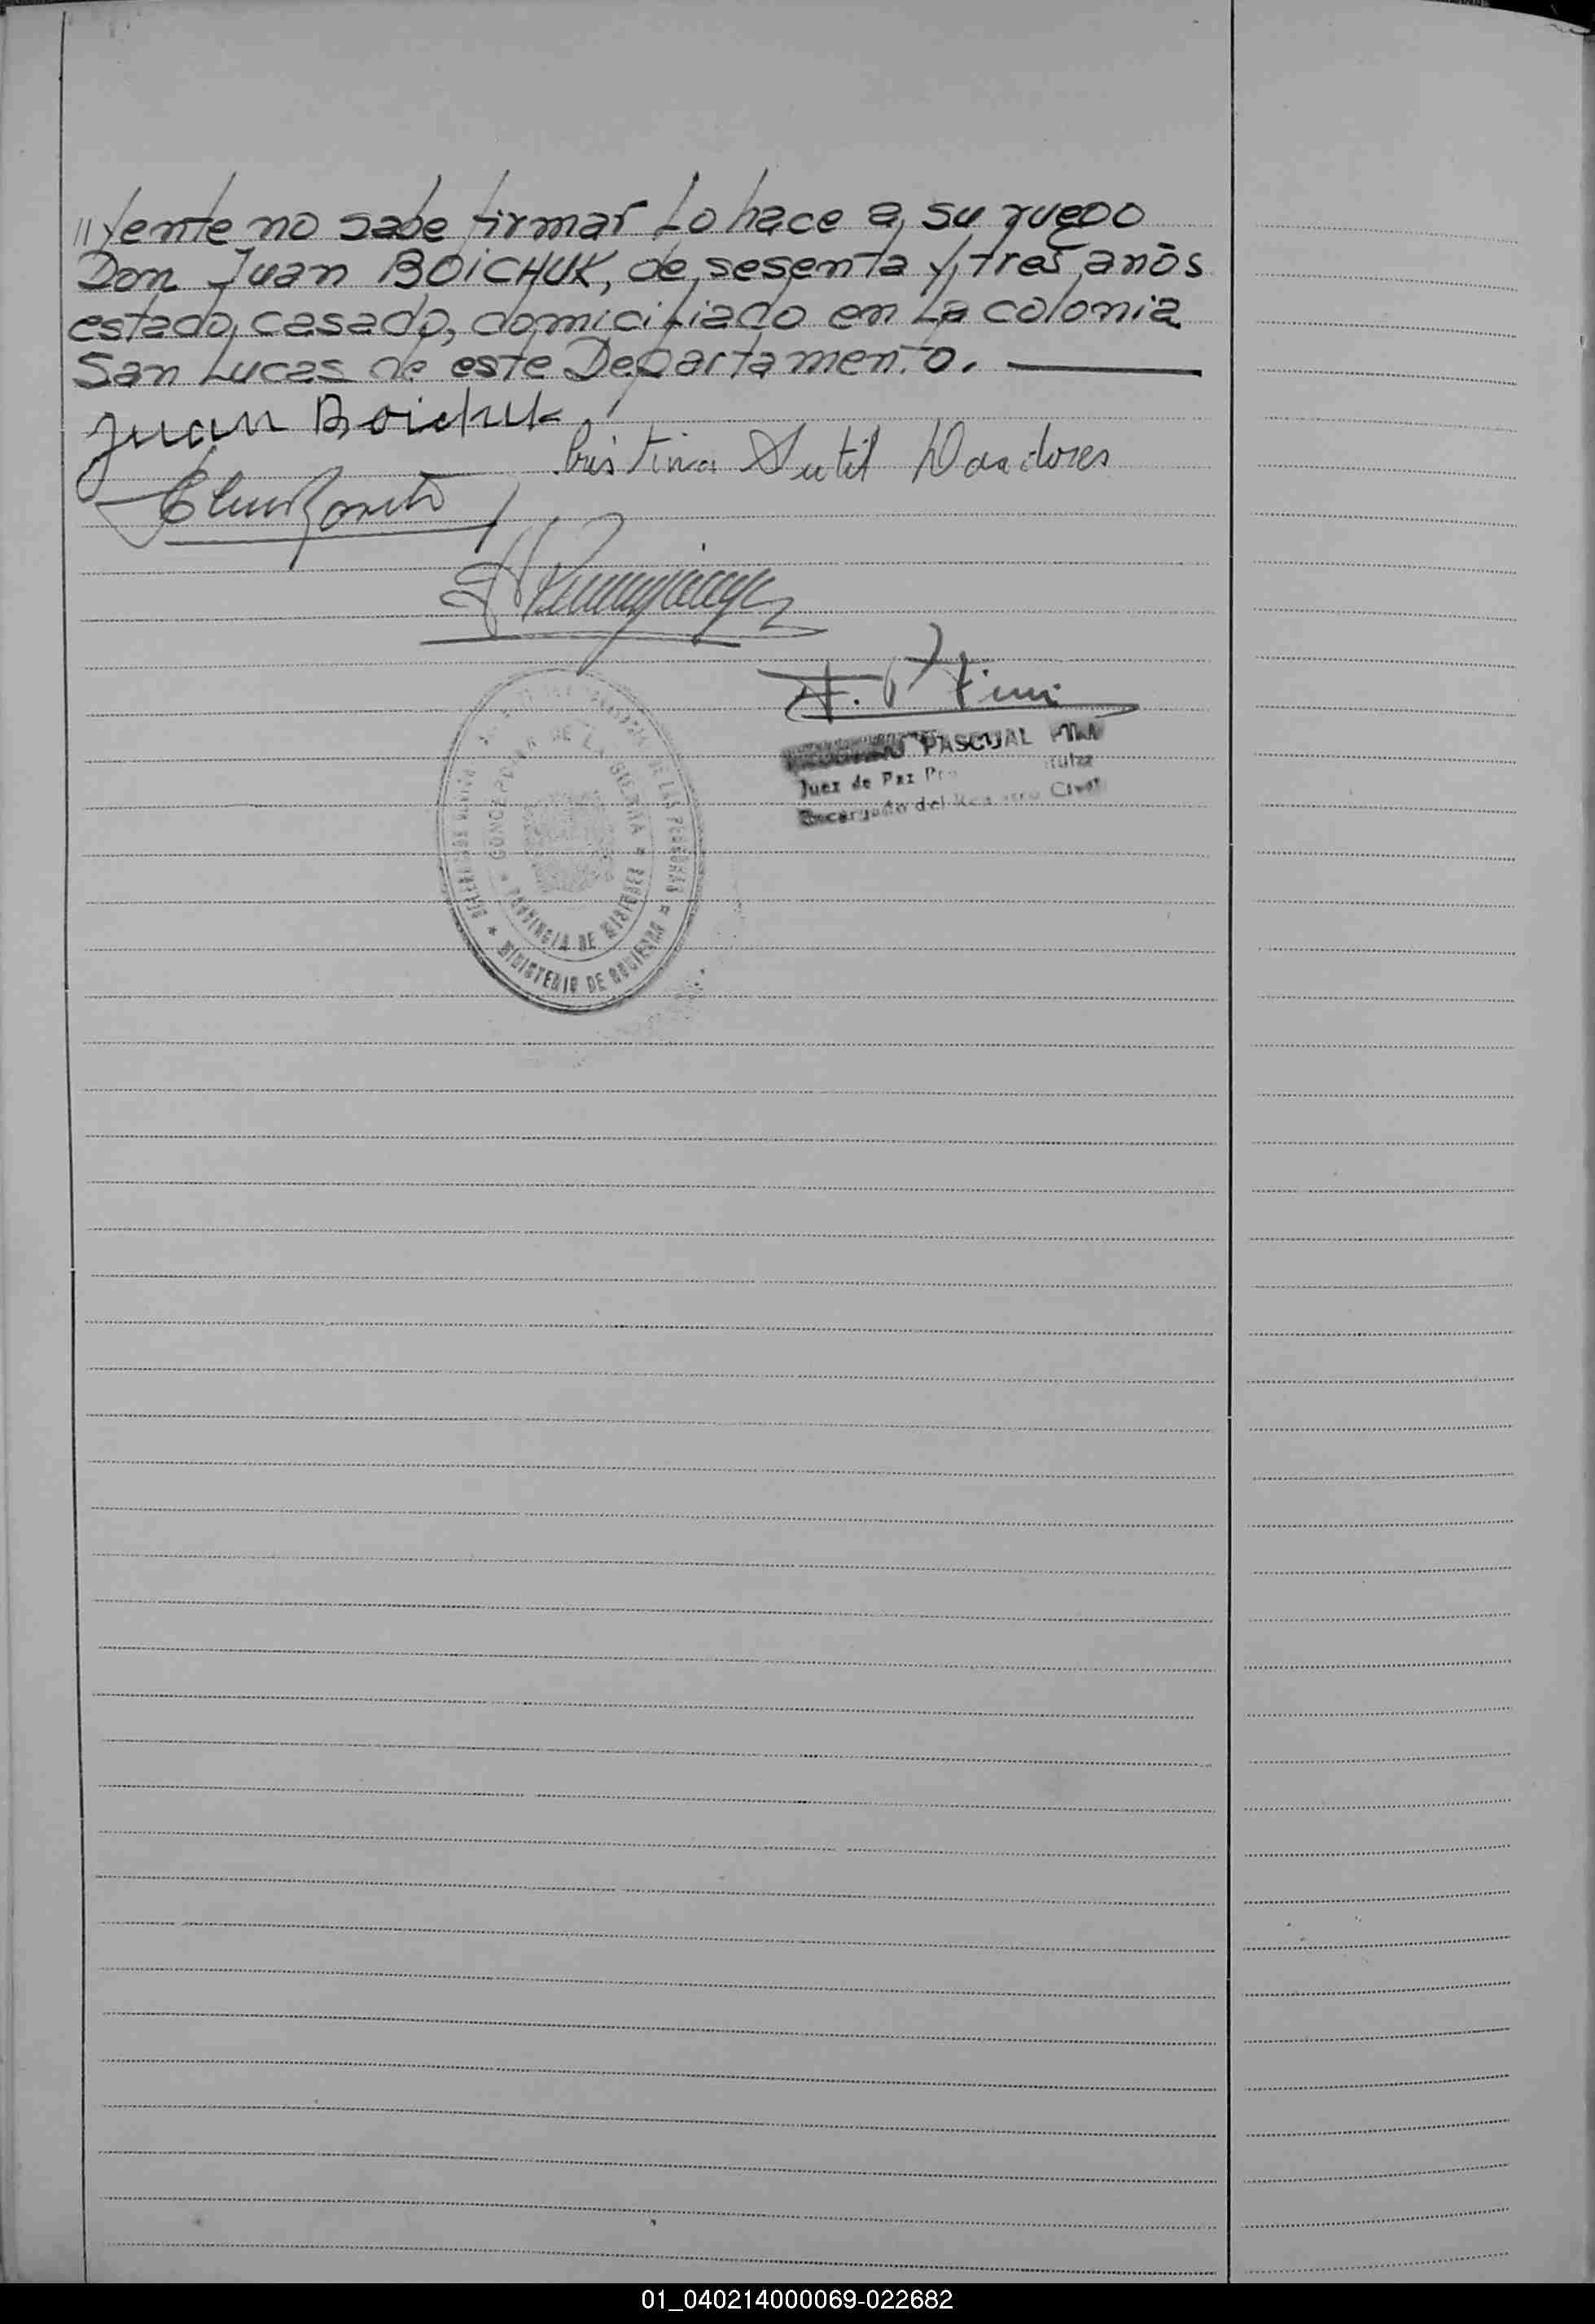 "yente no sabe firmar Lo hace a su ruego
Don Juan BOICHUK, de sesenta y tres años
estado casado, domiciliado en La colonia
San Lucas de este Departamento.
Juan Boichuk
Cristina Sutil
F. P.
PASCUAL
Juez de Paz
Encargado del Registro Civil
DE LAS PERSONAS * MINISTERIO DE GOBIERNO *
CONCEPCION DE LA SIERRA * PROVINCIA DE MISIONES *
01_040214000069-022682